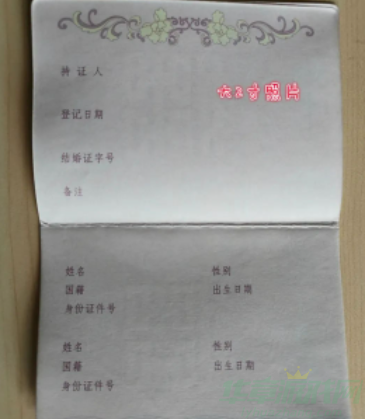 持证人
大2寸照片
登记日期
结婚证字号
备注
姓名 性别
国籍 出生日期
身份证件号
姓名 性别
国籍 出生日期
身份证件号